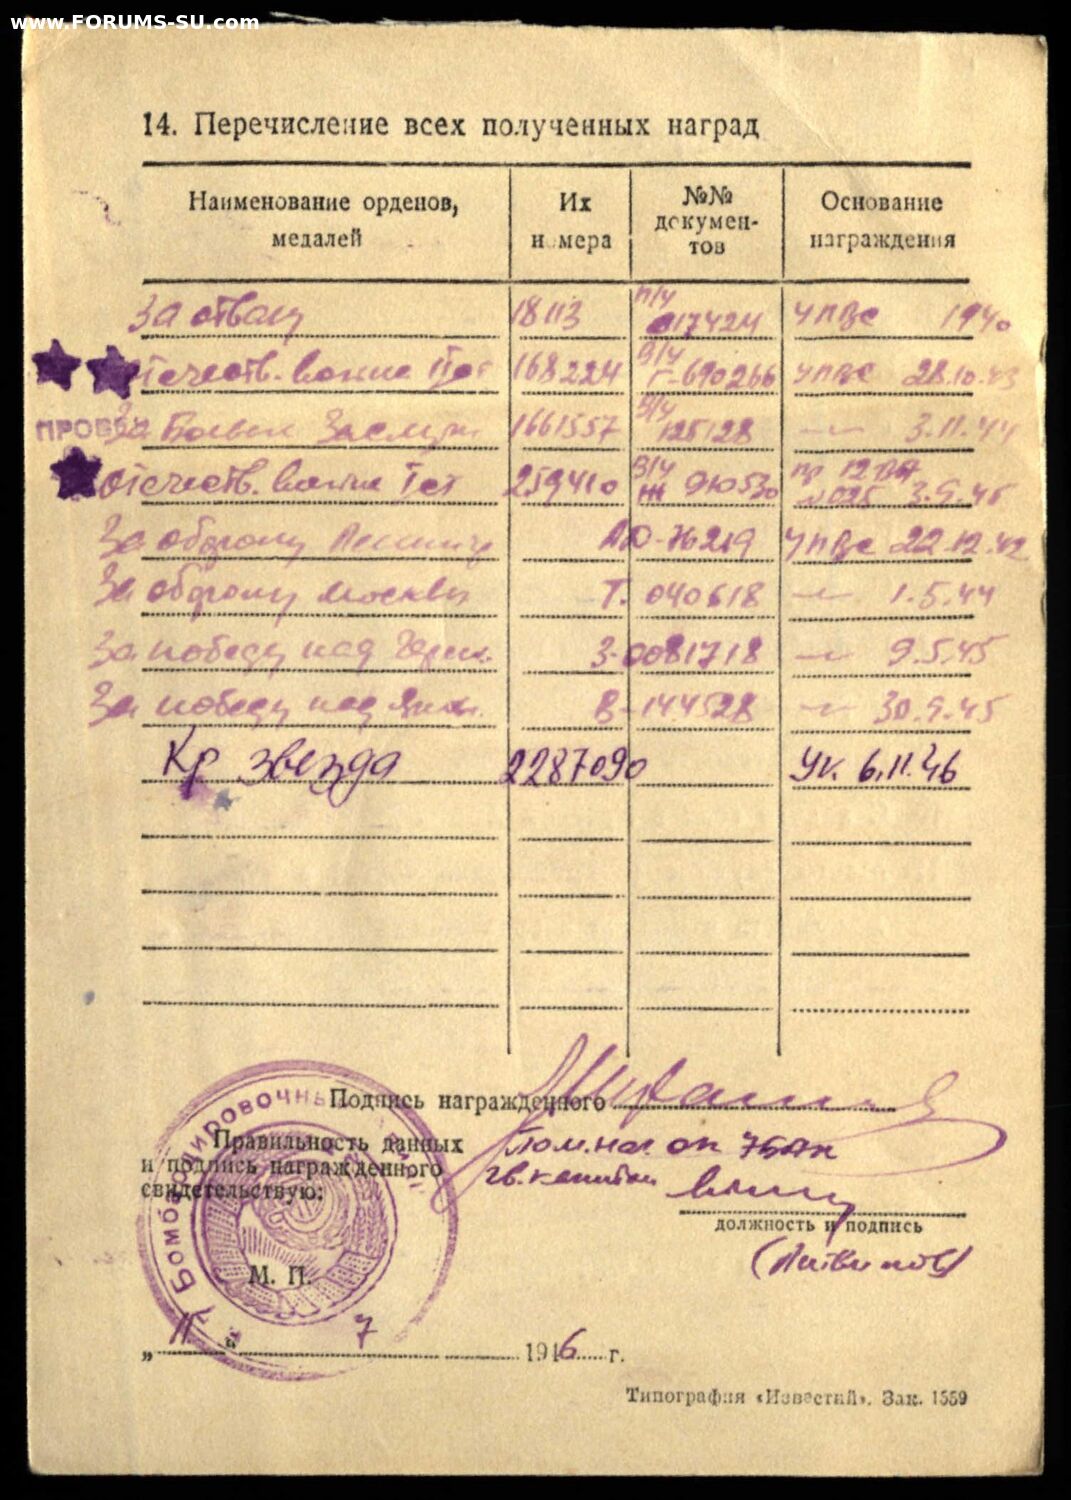 www.FORUMS-SU.com
14. Перечисление всех полученных наград
Наименование орденов, медалей | Их номера | №№ документов | Основание награждения
За отвагу 18113 В/ч 017424 УПВС 1940
Отечеств. войны II ст 168224 В/ч Г-690266 УПВС 28.10.43
ПРОВЕР
За Боевые Заслуги 1661557 В/ч 125128 —〃— 3.11.44
Отечеств. войны I ст 259410 В/ч Ж 910530 пр 12 ВА №025 3.9.45
За оборону Ленингр АО-76219 УПВС 22.12.42
За оборону Москвы Т. 040618 —〃— 1.5.44
За победу над Герм. З-0081718 —〃— 9.5.45
За победу над Япон. В-144528 —〃— 30.9.45
Кр звезда 2287090 Ук. 6.11.46
Подпись награжденного
Правильность данных
и подпись награжденного
свидетельствую:
Пом. нач. оп 7БАК
гв. капитан
должность и подпись
(Литвинов)
Бомбардировочный
М. П.
„ 11 “ 7 1946 г.
Типография «Известий». Зак. 1559